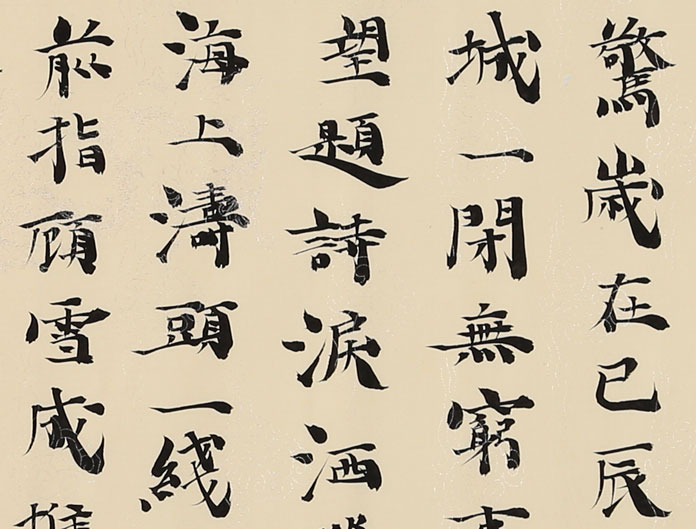 驚歲在已辰
城一閉無窮
望題詩淚洒
海上濤頭一綫
前指顧雪成